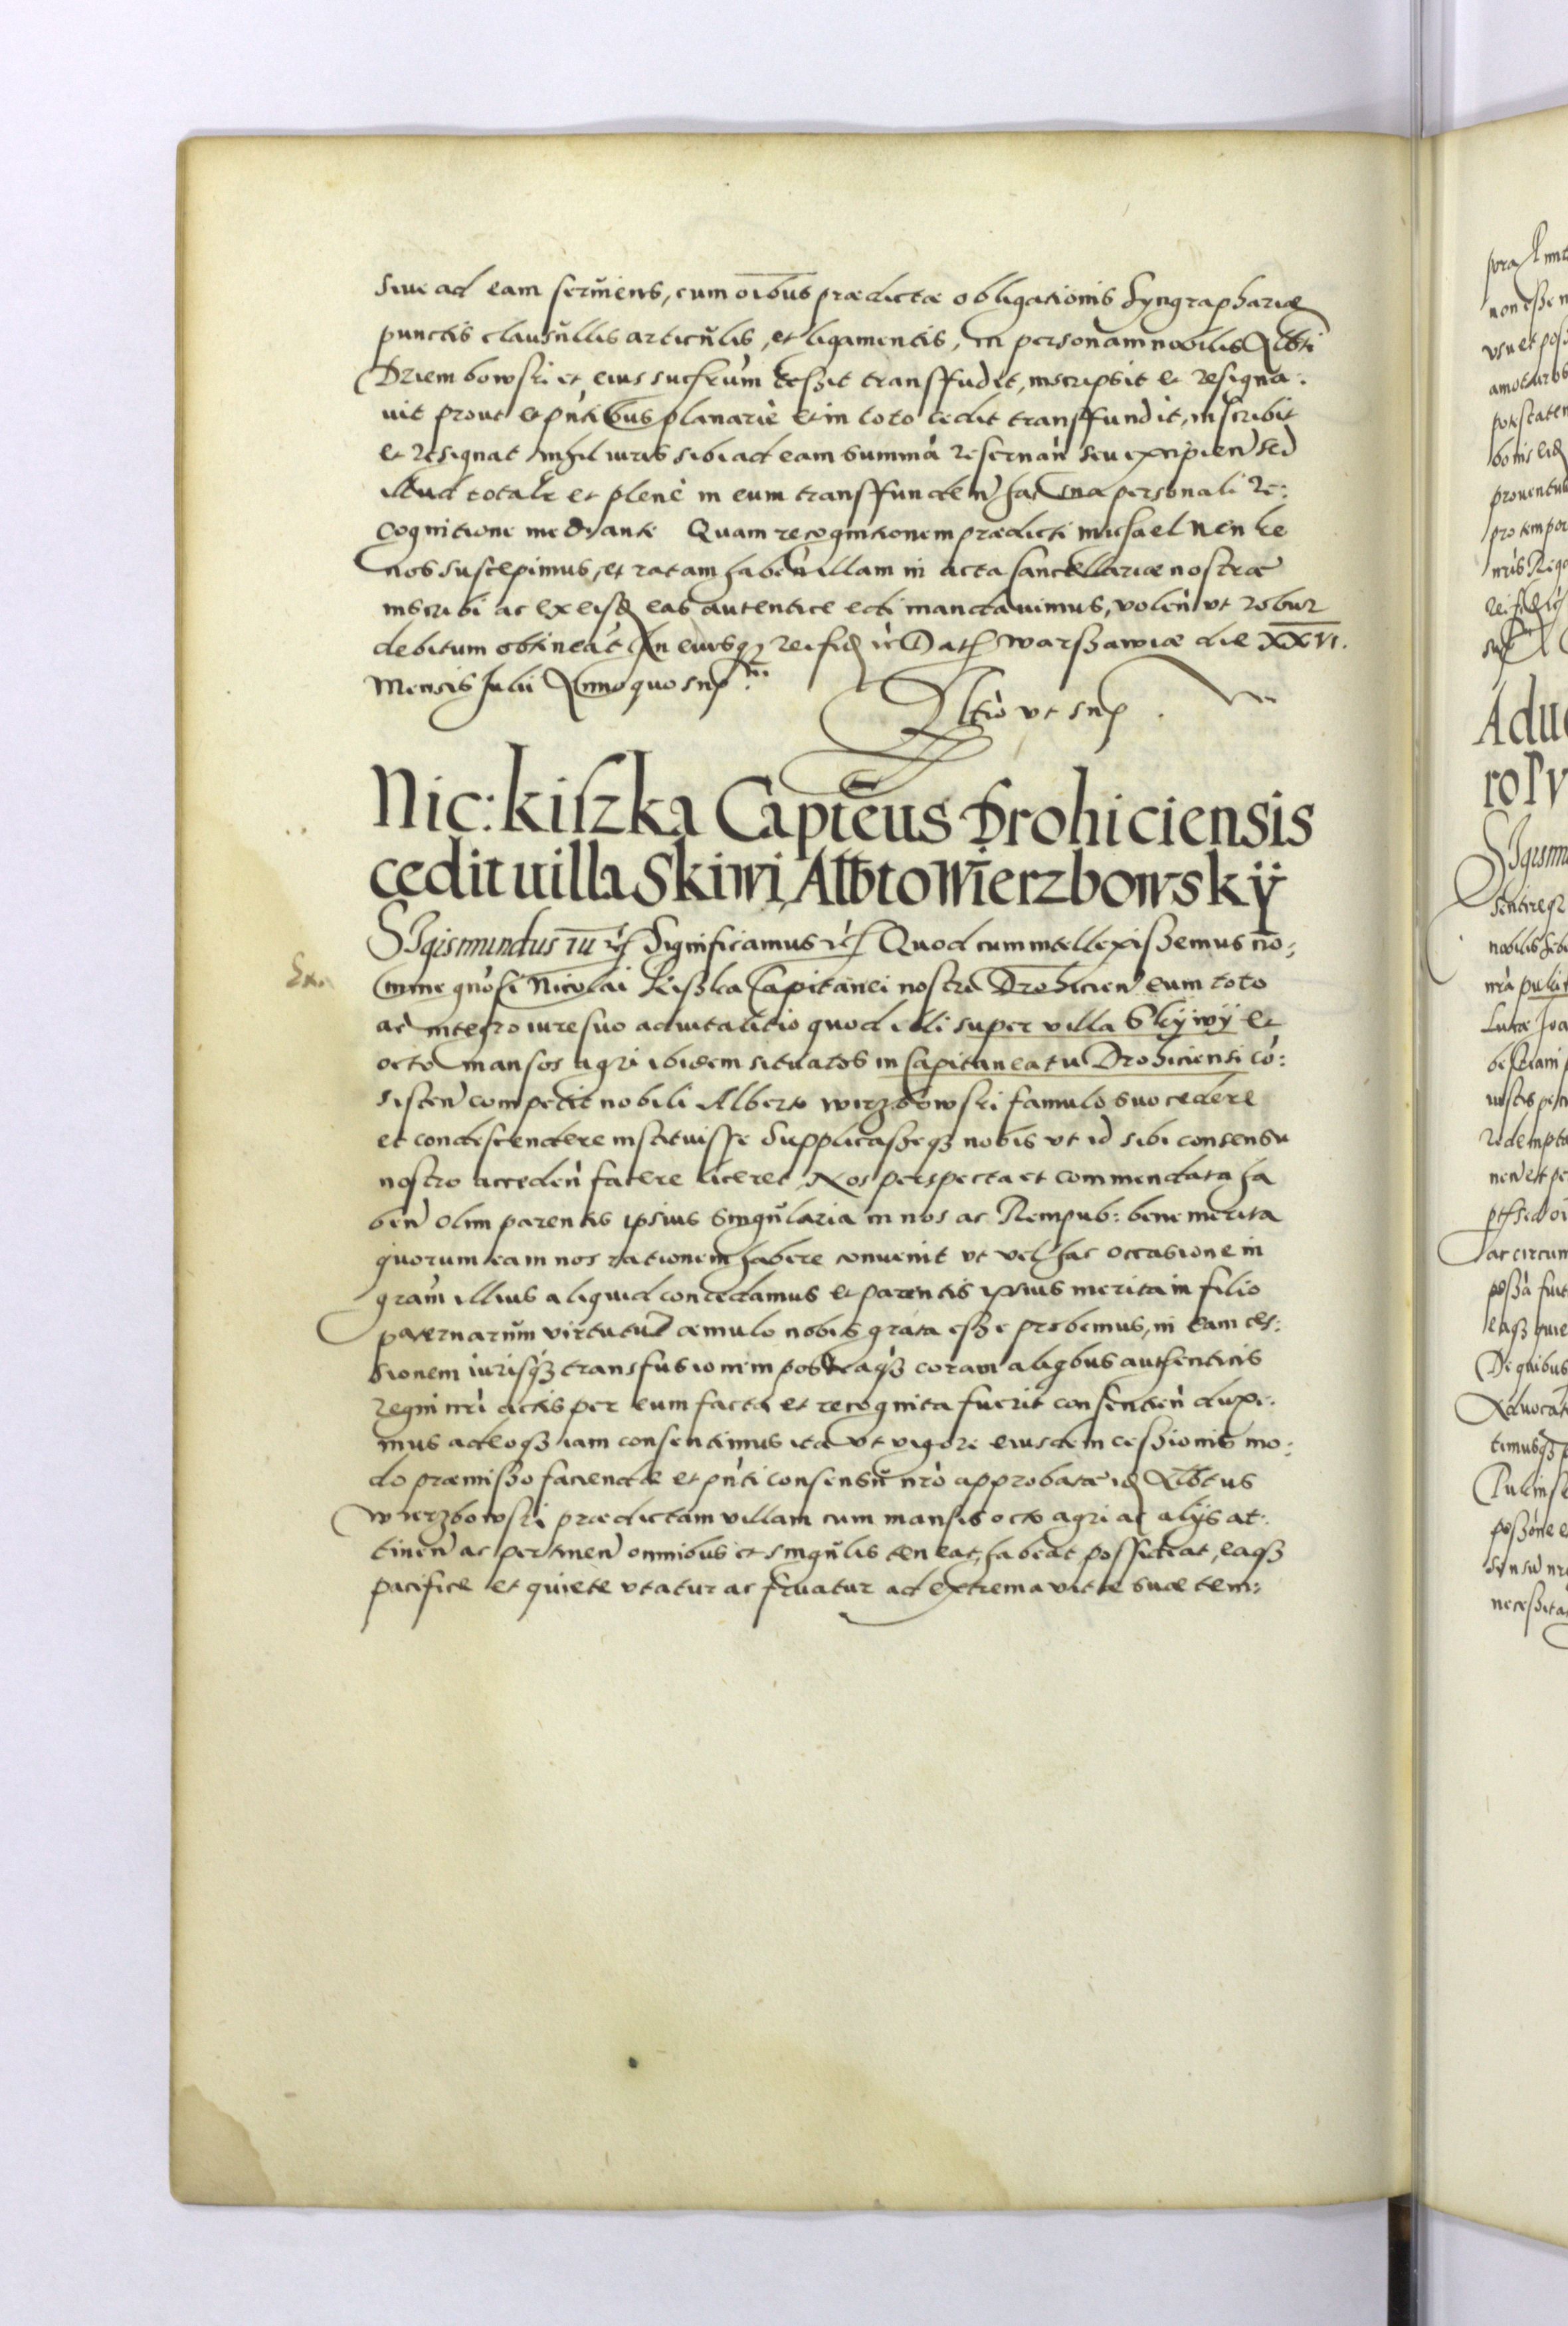 siue ad eam seruiens, cum oibus prædictæ obligationis syngraphariæ
punctis clausullis articulis, et ligamentis, in personam nobilis Albti
Dziembowski et eius sucsrum cessit transffudit, inscripsit et resigna:
uit prout et pntibus planariè et in toto cedit transffundit, inscribit
et resignat nihil iuris sibi ad eam summá reseruan seu excipien sed
illud totale et plenè in eum transffunden hac sua personali re:
cognitione mediante Quam recognitionem prædicti Michael Nenke
nos suscepimus, et ratam haben illam in acta cancellariæ nostræ
inscribi ac ex eisd eas autentice edi mandauimus, volen vt robur
debitum obtineat In cuius rei fid rc Dat Warssawiæ die XXVI.
Mensis Julii Anno quo sup
Rltio vt sup.
Nic: kiszka Capteus Drohiciensis
cedit uilla Skiwi, Albto Wierzbowskÿ
SIgismundus IIII rc Significamus rc Quod cum intellexissemus no:
mine gnosi Nicolai Kisska Capitanei nostri Drohicien eum toto
ac integro iure suo aduitalitio quod illi super villa Skÿwÿ et
octo mansos agri ibidem situatos in Capitaneatu Drohiciensi co:
sisten competit nobili Alberto Wirzbowski famulo suo cedere
et condescendere instituisse Supplicasseq nobis vt id sibi consensu
nostro acceden facere liceret, Nos perspecta et commendata ha
ben olim parentis ipsius singularia in nos ac Rempub: bene merita
quorum eam nos rationem habere conuenit vt vel hac occasione in
gram illius aliquid concedamus et parentis ipsius merita in filio
paternarum virtutu æmulo nobis grata esse probemus, in eam ces:
sionem iurisq transfusionem posteaq coram aliqbus authenticis
regni nri actis per eum facta et recognita fuerit consentien duxi:
mus adeoq iam consentimus ita vt vigore eiusdem cessionis mo:
do præmisso faciendæ et pnti consensu nro approbatæ id Albtus
Wierzbowski prædictam villam cum mansis octo agri ac alÿs at:
tinen ac pertinen omnibus et singulis teneat, habeat possideat, eaq
pacifice et quiete vtatur ac fruatur ad extrema vitæ suæ tem: